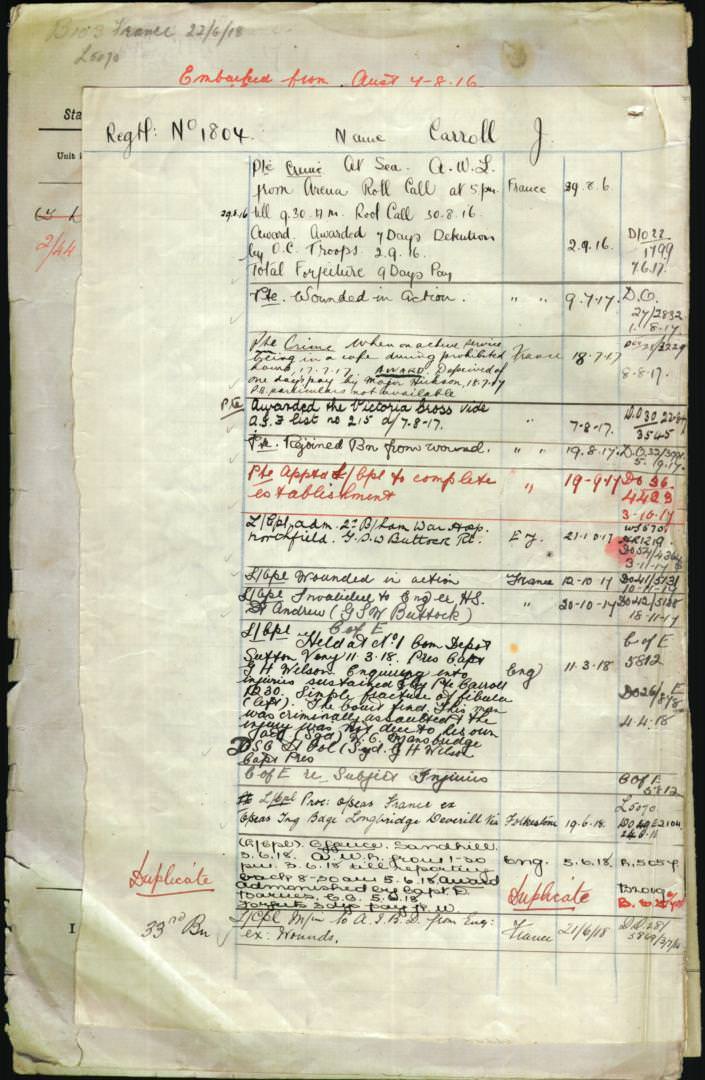 B103 France 22/6/18
L5070
Embarked from Aust 4-8-16
Sta
Unit i
2/44
Regtl: No 1804. Name Carroll J.
Pte Crime At Sea. A.W.L.
from Arena Roll Call at 5 pm France 29.8.6
29.8.16 till 9.30 A.M. Roll Call 30.8.16.
Award. Awarded 7 Days Detention
by O.C. Troops 2.9.16. 2.9.16. D1022
1799
Total Forfeiture 9 Days Pay 7.6.17.
Pte. Wounded in Action. " " 9.7.17. D.O.
27/2832
1. 8.17
Pte Crime When on active service
being in a cafe during prohibited France 18.7.17
hours, 17.7.17. AWARD. Deprived of
one days pay by Major Hudson, 18.7.17 8-8-17.
particulars not available
Pte Awarded the Victoria Cross vide
A.I.F list no 215 d/7-8-17. " 7-8-17. 3545
Pte. Rejoined Bn from wound. " " 19.8.17.
5. 9.17.
Pte Apptd L/Cpl to complete " 19-9-17 Do 36.
establishment 4423
3-10-17
L/Cpl. adm. 2nd B/ham War Hosp.
Northfield. G.S.W Buttock Rt. Eng. 21.10.17
3-11-17
L/Cpl Wounded in action France 12-10-17 Do41/5131
10-11-17
L/Cpl Invalided to Eng er H.S.
St Andrew (G S W Buttock) " 20-10-17 Do42/5188
18-11-17
L/Cpl C of E
Held at No 1 Com Depot C of E
Sutton Veny 11.3.18. Pres Capt 5812
G H Wilson. Enquiring into Eng 11.3.18
injuries sustained by Pte Carroll
Simple fracture of fibula Do26/
(left). The court find. This man
was criminally assaulted & the 4.4.18
injury was not due to his own
fault (Sgd) W.C. Mansbridge
DSO Lt Col (Sgd. G H Wilson
Capt Pres
C of E re Subject Injuries C of E
5812
L/Cpl Proc: Opeas France ex L5070
Opeas Tng Bage Longbridge Deverill via Folkestone 19.6.18.
(A/Cpl) Offence. Sandhill.
5.6.18. A.W.L. from 1-30 Eng. 5.6.18. R.5054
pm. 3.6.18 till reporting
Duplicate back 8-30 am 5.6.18. Award Duplicate
admonished by Capt. E.
Davies. C.O. 5.6.18
Forfeits 3 dys pay R.W.
33rd Bn L/Cpl M/in to A.I.B.D. from Eng: France 21/6/18
ex: Wounds.